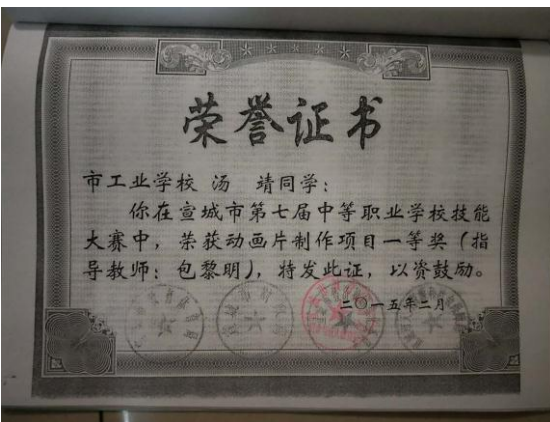 荣誉证书
市工业学校 汤 靖同学：
你在宣城市第七届中等职业学校技能
大赛中，荣获动画片制作项目一等奖（指
导教师：包黎明），特发此证，以资鼓励。
二〇一五年二月